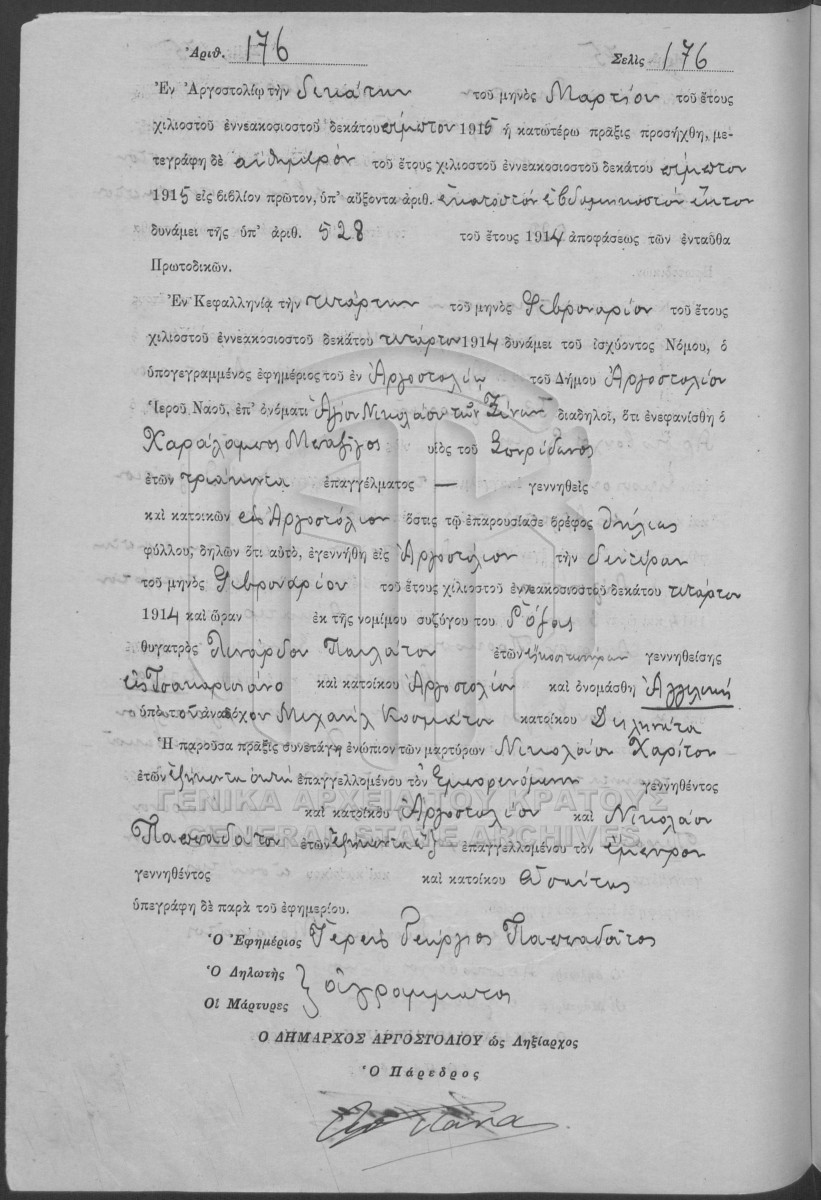 Ἀριθ. 176 Σελὶς 176
Ἐν Ἀργοστολίῳ τὴν δεκάτην τοῦ μηνὸς Μαρτίου τοῦ ἔτους
χιλιοστοῦ ἐννεακοσιοστοῦ δεκάτου πέμπτου 1915 ἡ κατωτέρω πρᾶξις προσήχθη, με-
τεγράφη δὲ αὐθημερόν τοῦ ἔτους χιλιοστοῦ ἐννεακοσιοστοῦ δεκάτου πέμπτου
1915 εἰς βιβλίον πρῶτον, ὑπ' αὔξοντα ἀριθ. ἑκατοστόν ἑβδομηκοστόν ἕκτον
δυνάμει τῆς ὑπ' ἀριθ. 528 τοῦ ἔτους 1914 ἀποφάσεως τῶν ἐνταῦθα
Πρωτοδικῶν.
Ἐν Κεφαλληνίᾳ τὴν τετάρτην τοῦ μηνὸς Φεβρουαρίου τοῦ ἔτους
χιλιοστοῦ ἐννεακοσιοστοῦ δεκάτου τετάρτου 1914 δυνάμει τοῦ ἰσχύοντος Νόμου, ὁ
ὑπογεγραμμένος ἐφημέριος τοῦ ἐν Ἀργοστολίῳ τοῦ Δήμου Ἀργοστολίου
Ἱεροῦ Ναοῦ, ἐπ' ὀνόματι Ἁγίου Νικολάου τῶν Ξένων διαδηλοῖ, ὅτι ἐνεφανίσθη ὁ
Χαράλαμπος υἱὸς τοῦ Σπυρίδωνος
ἐτῶν τριάκοντα ἐπαγγέλματος — γεννηθεὶς
καὶ κατοικῶν εἰς Ἀργοστόλιον ὅστις τῷ ἐπαρουσίασε βρέφος θήλεως
φύλλου, δηλῶν ὅτι αὐτό, ἐγεννήθη εἰς Ἀργοστόλιον τὴν δευτέραν
τοῦ μηνὸς Φεβρουαρίου τοῦ ἔτους χιλιοστοῦ ἐννεακοσιοστοῦ δεκάτου τετάρτου
1914 καὶ ὥραν ἐκ τῆς νομίμου συζύγου του Ρόζας
θυγατρὸς Λινάρδου Παυλάτου ἐτῶν γεννηθείσης
εἰς Τσακαρισιάνο καὶ κατοίκου Ἀργοστολίου καὶ ὀνομάσθη Ἀγγελική
ὑπὸ τοῦ ἀναδόχου Μιχαήλ Κοσμάτου κατοίκου Δειλινάτα
Ἡ παροῦσα πρᾶξις συνετάγη ἐνώπιον τῶν μαρτύρων Νικολάου Χαρίτου
ἐτῶν ἑξήκοντα ὀκτώ ἐπαγγελλομένου τὸν γεννηθέντος
καὶ κατοίκου Ἀργοστολίου καὶ Νικολάου
Παππαδάτου ἐτῶν ἑξήκοντα ἕξ ἐπαγγελλομένου τὸν ἔμπορον
γεννηθέντος καὶ κατοίκου ὡσαύτως
ὑπεγράφη δὲ παρὰ τοῦ ἐφημερίου.
Ὁ Ἐφημέριος Ἱερεύς Γεώργιος Παππαδᾶτος
Ὁ Δηλωτὴς
ἀγράμματος
Οἱ Μάρτυρες
Ο ΔΗΜΑΡΧΟΣ ΑΡΓΟΣΤΟΛΙΟΥ ὡς Ληξίαρχος
Ὁ Πάρεδρος
ΓΕΝΙΚΑ ΑΡΧΕΙΑ ΤΟΥ ΚΡΑΤΟΥΣ
GENERAL STATE ARCHIVES